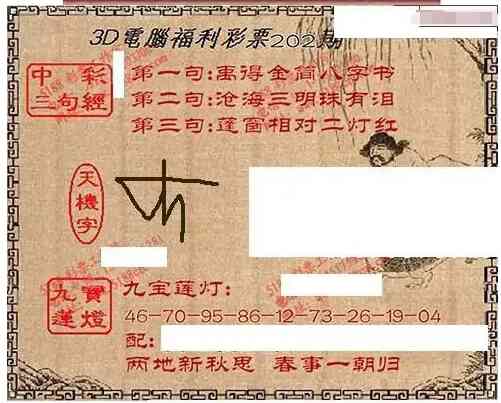 3D電腦福利彩票202期
中彩
三句經
第一句:禹得金简八字书
第二句:沧海三明珠有泪
第三句:莲窗相对二灯红
天機字
九寶
蓮燈
九宝莲灯:
46-70-95-86-12-73-26-19-04
配:
两地新秋思 春事一朝归